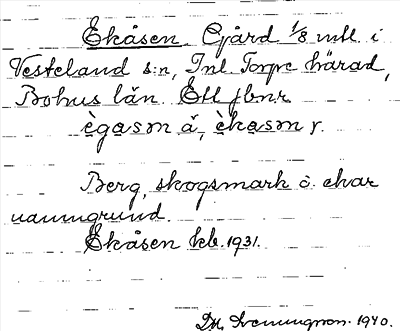 Ekåsen. Gård 1/8 mtl. i
Vesteland s:n, Inl. Torpe härad,
Bohus län. Ett jbnr
ègasm ä, èkasm y.
Berg, skogsmark o. ekar
Ekåsen kb. 1931.
1940.